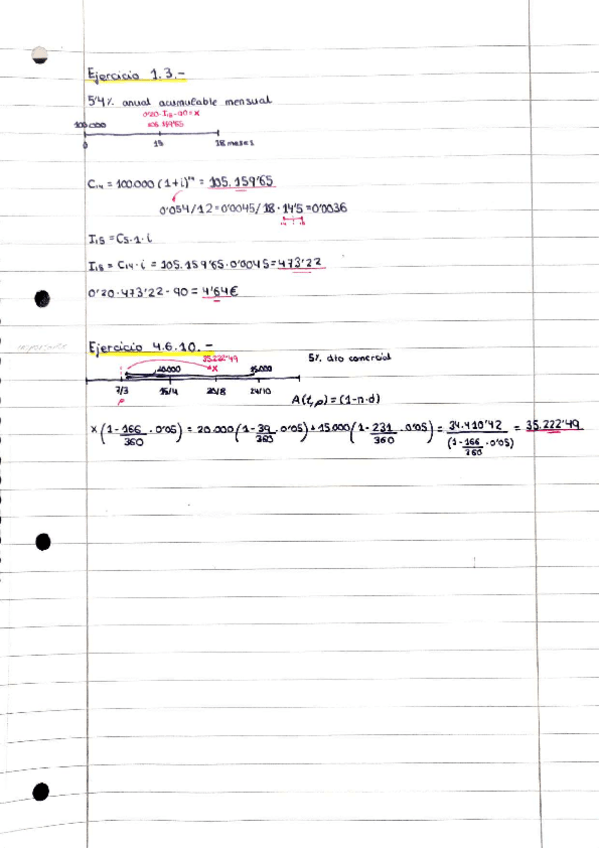 Ejercicio 1.3.-
5'4% anual acumulable mensual
0'20·I₁₅-90=X
100.000 105.159'65
0 15 18 meses
C₁₄ = 100.000 (1+i)¹⁴ = 105.159'65
0'054/12=0'0045/18·14'5=0'0036
I₁₅ = C₅·1·i
I₁₅ = C₁₄·i = 105.159'65·0'0045=473'22
0'20·473'22-90 = 4'64€
importante Ejercicio 4.6.10.-
35.222'49 5% dto comercial
20.000 X 15.000
7/3 15/4 20/8 24/10
P A(t,p)=(1-n·d)
X (1-166/360·0'05) = 20.000(1-39/360·0'05)+15.000(1-231/360·0'05) = 34.410'42/(1-166/360·0'05) = 35.222'49